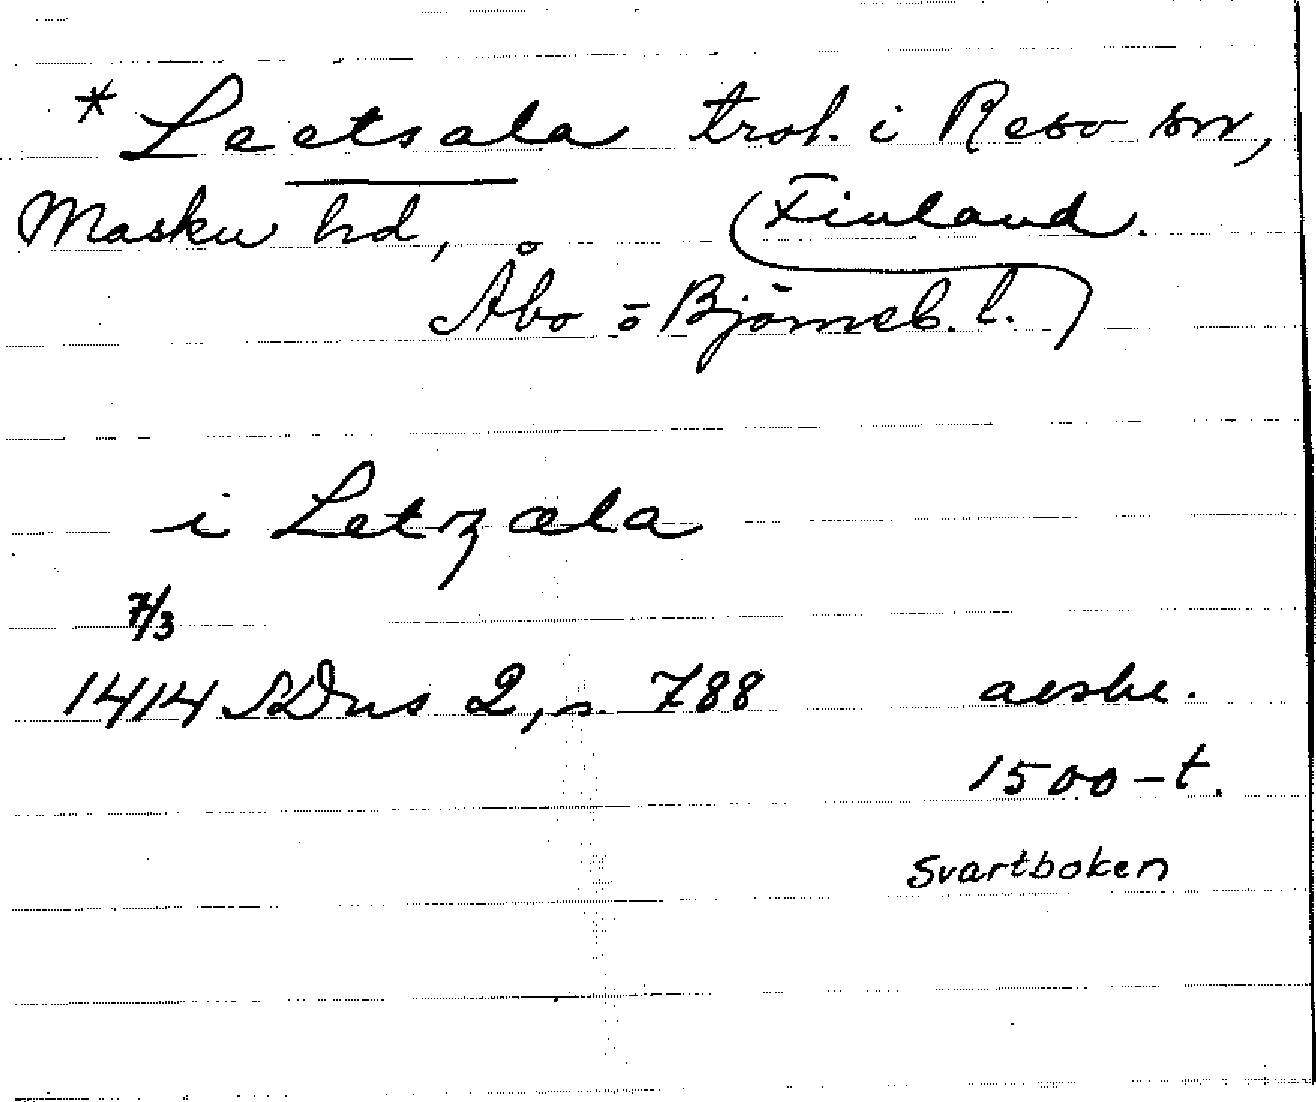 * Leetsala trol. i Reso sn,
Masku hd, (Finland.
Åbo o Björneb. l.)
i Letzala
7/3
1414 SDns 2, s. 788 avskr.
1500-t.
Svartboken